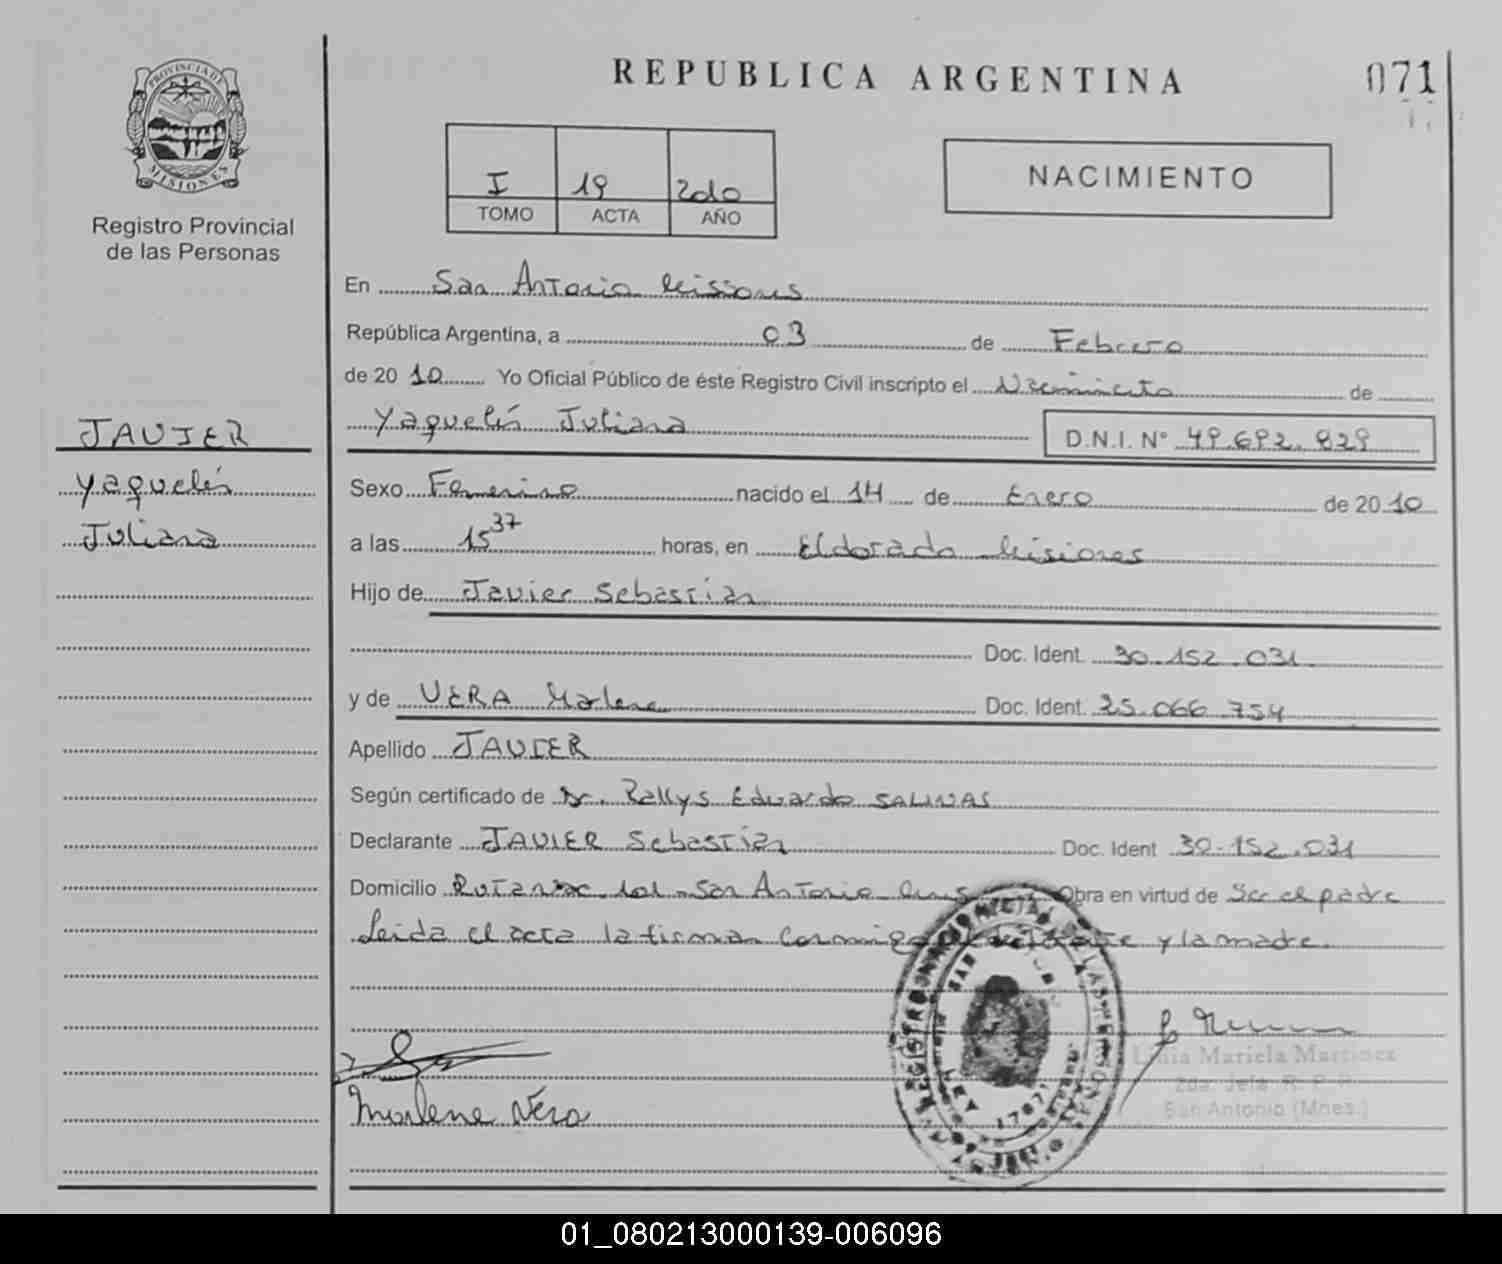 REPUBLICA ARGENTINA
071
PROVINCIA DE
MISIONES
Registro Provincial
de las Personas
I 19 2010
TOMO ACTA AÑO
NACIMIENTO
En San Antonio Misiones
República Argentina, a 03 de Febrero
de 2010 Yo Oficial Público de éste Registro Civil inscripto el Nacimiento de
Yaquelín Juliana
D.N.I. N° 49.692.829
JAVIER
Yaquelín
Juliana
Sexo Femenino nacido el 14 de Enero de 2010
a las 15 37 horas, en Eldorado Misiones
Hijo de Javier Sebastián
Doc. Ident. 30.152.031
y de VERA Marlene Doc. Ident. 25.066.754
Apellido JAVIER
Según certificado de Dr. Rallys Eduardo SALINAS
Declarante JAVIER Sebastián Doc. Ident 30.152.031
Domicilio San Antonio Obra en virtud de Ser el padre
Leida el acta la firman conmigo el y la madre.
Marlene Vera
Mariela Martinez
2da. Jefa R. P. P.
San Antonio (Mnes.)
01_080213000139-006096